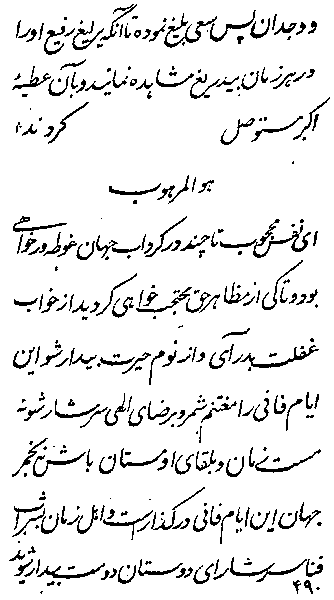 و وجدان پس سعی بلیغ نموده تا آنکه یرلیغ رفیع او را
در هر زمان بیدریغ مشاهده نمائید و بآن عطیهٔ
اکبر متوصل کردید
هو المرهوب
ای نفس محجوب تا چند در کرداب جهان غوطه ور خواهی
بود و تا کی از مظاهر حق محتجب خواهی کردید از خواب
غفلت بدر آی و از نوم حیرت بیدار شو این
ایام فانی را مغتنم شمر و برضای الهی سرشار شو نه
مست زمان و بلقای او مستان باش نه بخمر
جهان این ایام فانی در کذار است و اهل زمان بشراب
فنا سرشار ای دوستان دوست بیدار شوید
۴۹۰